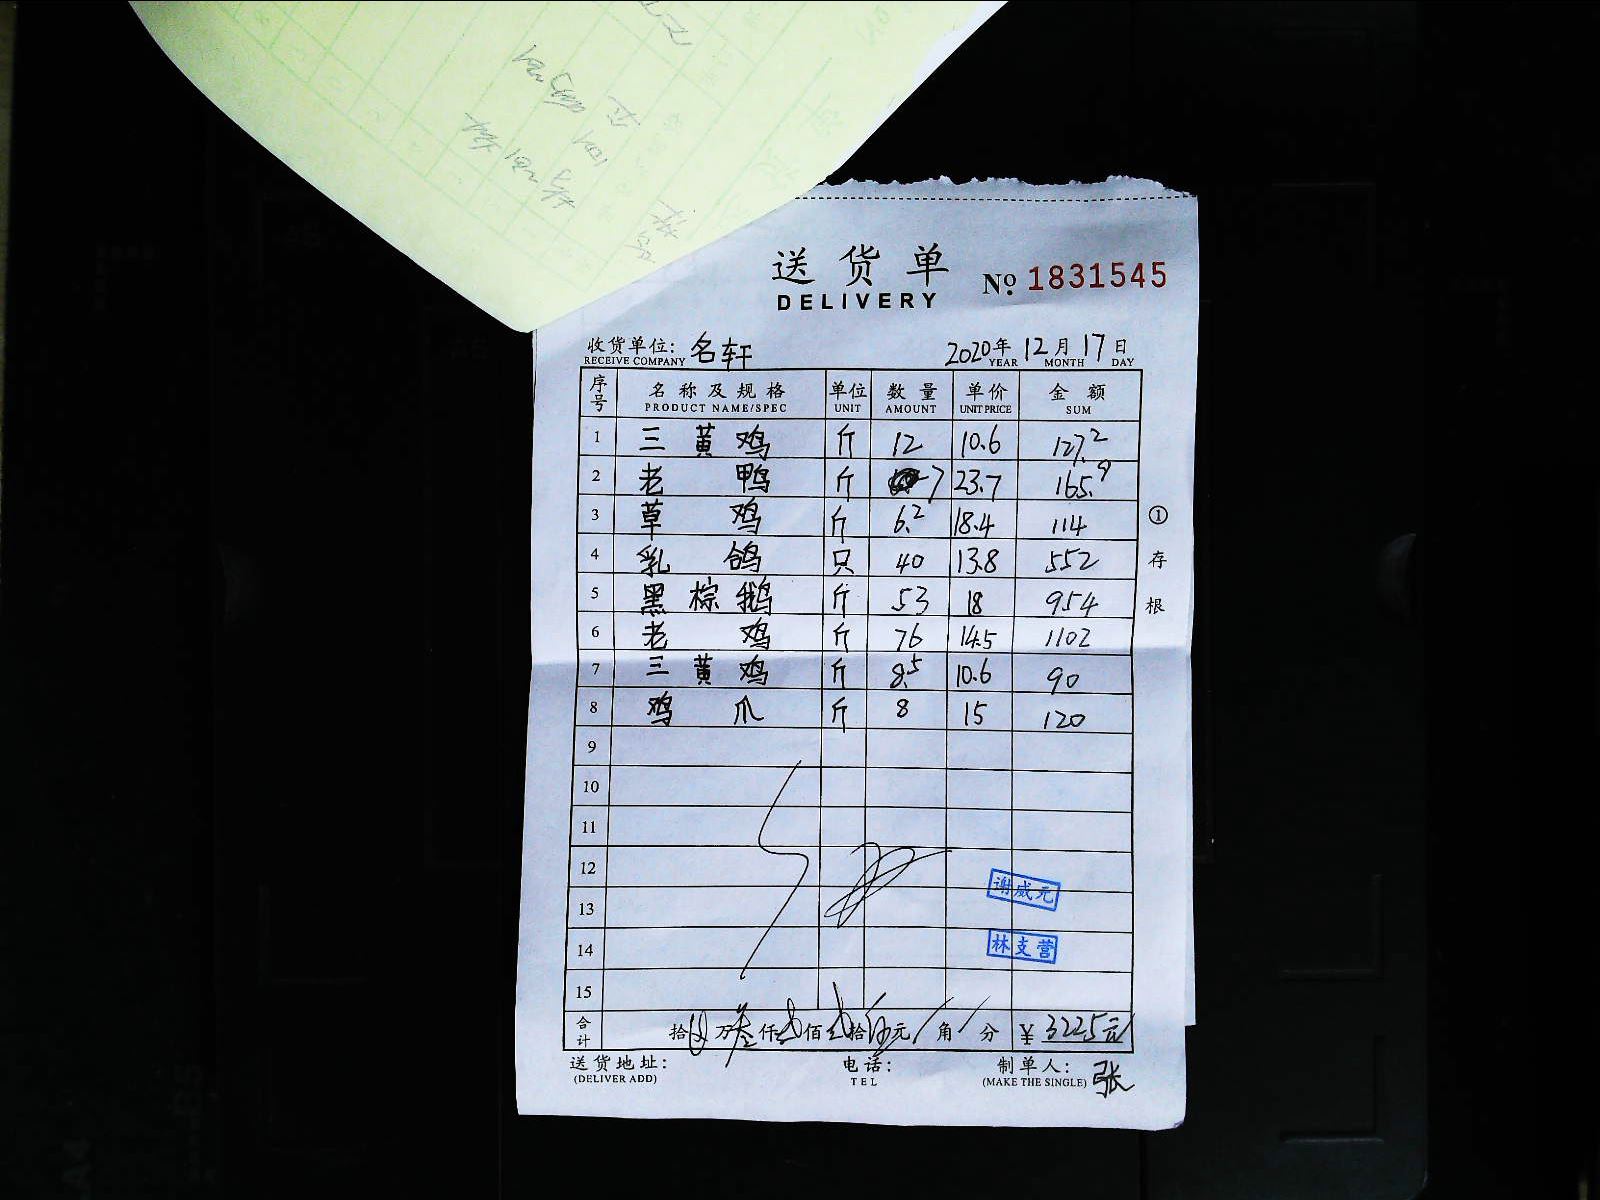 送货单
DELIVERY
No. 1831545
收货单位: 名轩 2020年12月17日
RECEIVE COMPANY YEAR MONTH DAY
序号 名称及规格 单位 数量 单价 金额
PRODUCT NAME/SPEC UNIT AMOUNT UNIT PRICE SUM
1 三黄鸡 斤 12 10.6 127.2
2 老鸭 斤 7 23.7 165.9
3 草鸡 斤 6.2 18.4 114
4 乳鸽 只 40 13.8 552
5 黑棕鹅 斤 53 18 954
6 老鸡 斤 76 14.5 1102
7 三黄鸡 斤 8.5 10.6 90
8 鸡爪 斤 8 15 120
9
10
11
12
13
14
15
谢威元
林支营
①存根
合计 拾 万叁仟 佰 拾伍元/角/分 ¥3225元
送货地址: 电话: 制单人: 张
(DELIVER ADD) TEL (MAKE THE SINGLE)